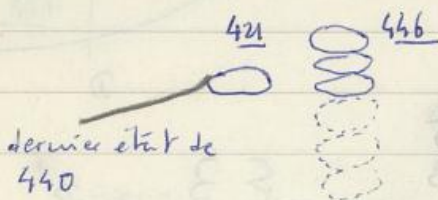 421 446
dernier état de
440